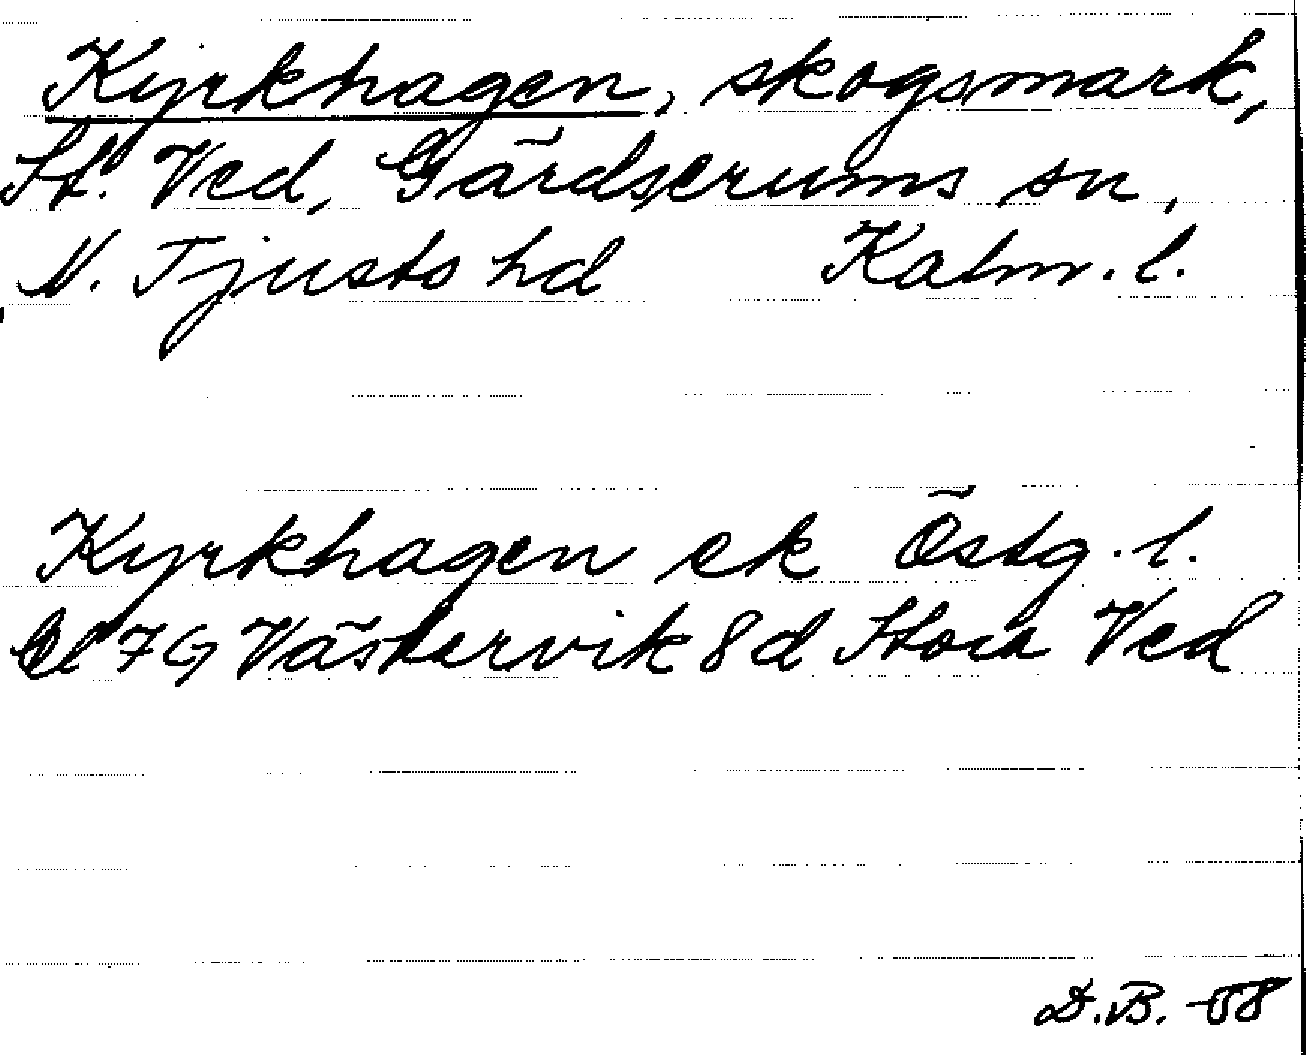 Kyrkhagen, skogsmark,
St. Ved, Gärdserums sn,
N. Tjusts hd Kalm. l.
Kyrkhagen ek Östg. l.
bl 7G Västervik 8d Stora Ved
D.B. -58